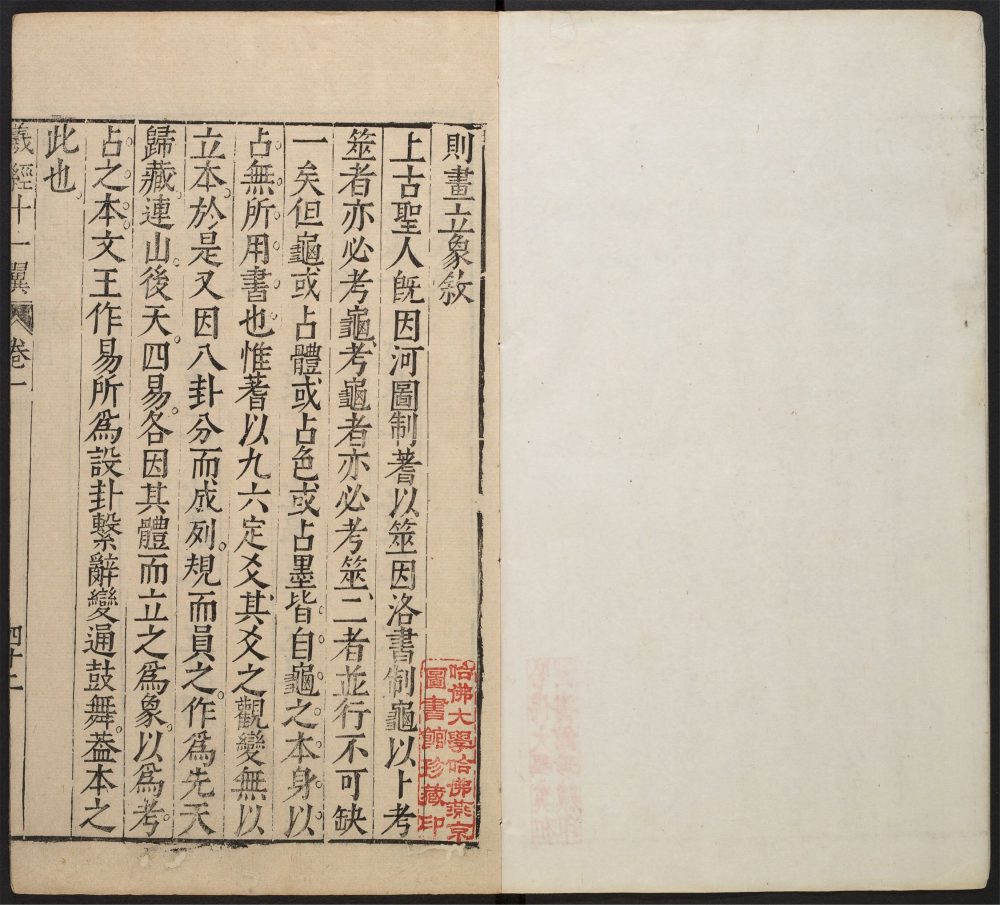 則畫立象敘
上古聖人旣因河圖制蓍以筮因洛書制龜以卜考
筮者亦必考龜考龜者亦必考筮二者並行不可缺
一矣但龜或占體或占色或占墨皆自龜之本身以
占無所用書也惟蓍以九六定爻其爻之觀變無以
立本於是又因八卦分而成列規而員之作爲先天
歸藏連山後天四易各因其體而立之爲象以爲考
占之本文王作易所爲設卦繫辭變通鼓舞葢本之
此也
羲經十一翼 卷一 四十二
哈佛大學哈佛燕京
圖書館珍藏印